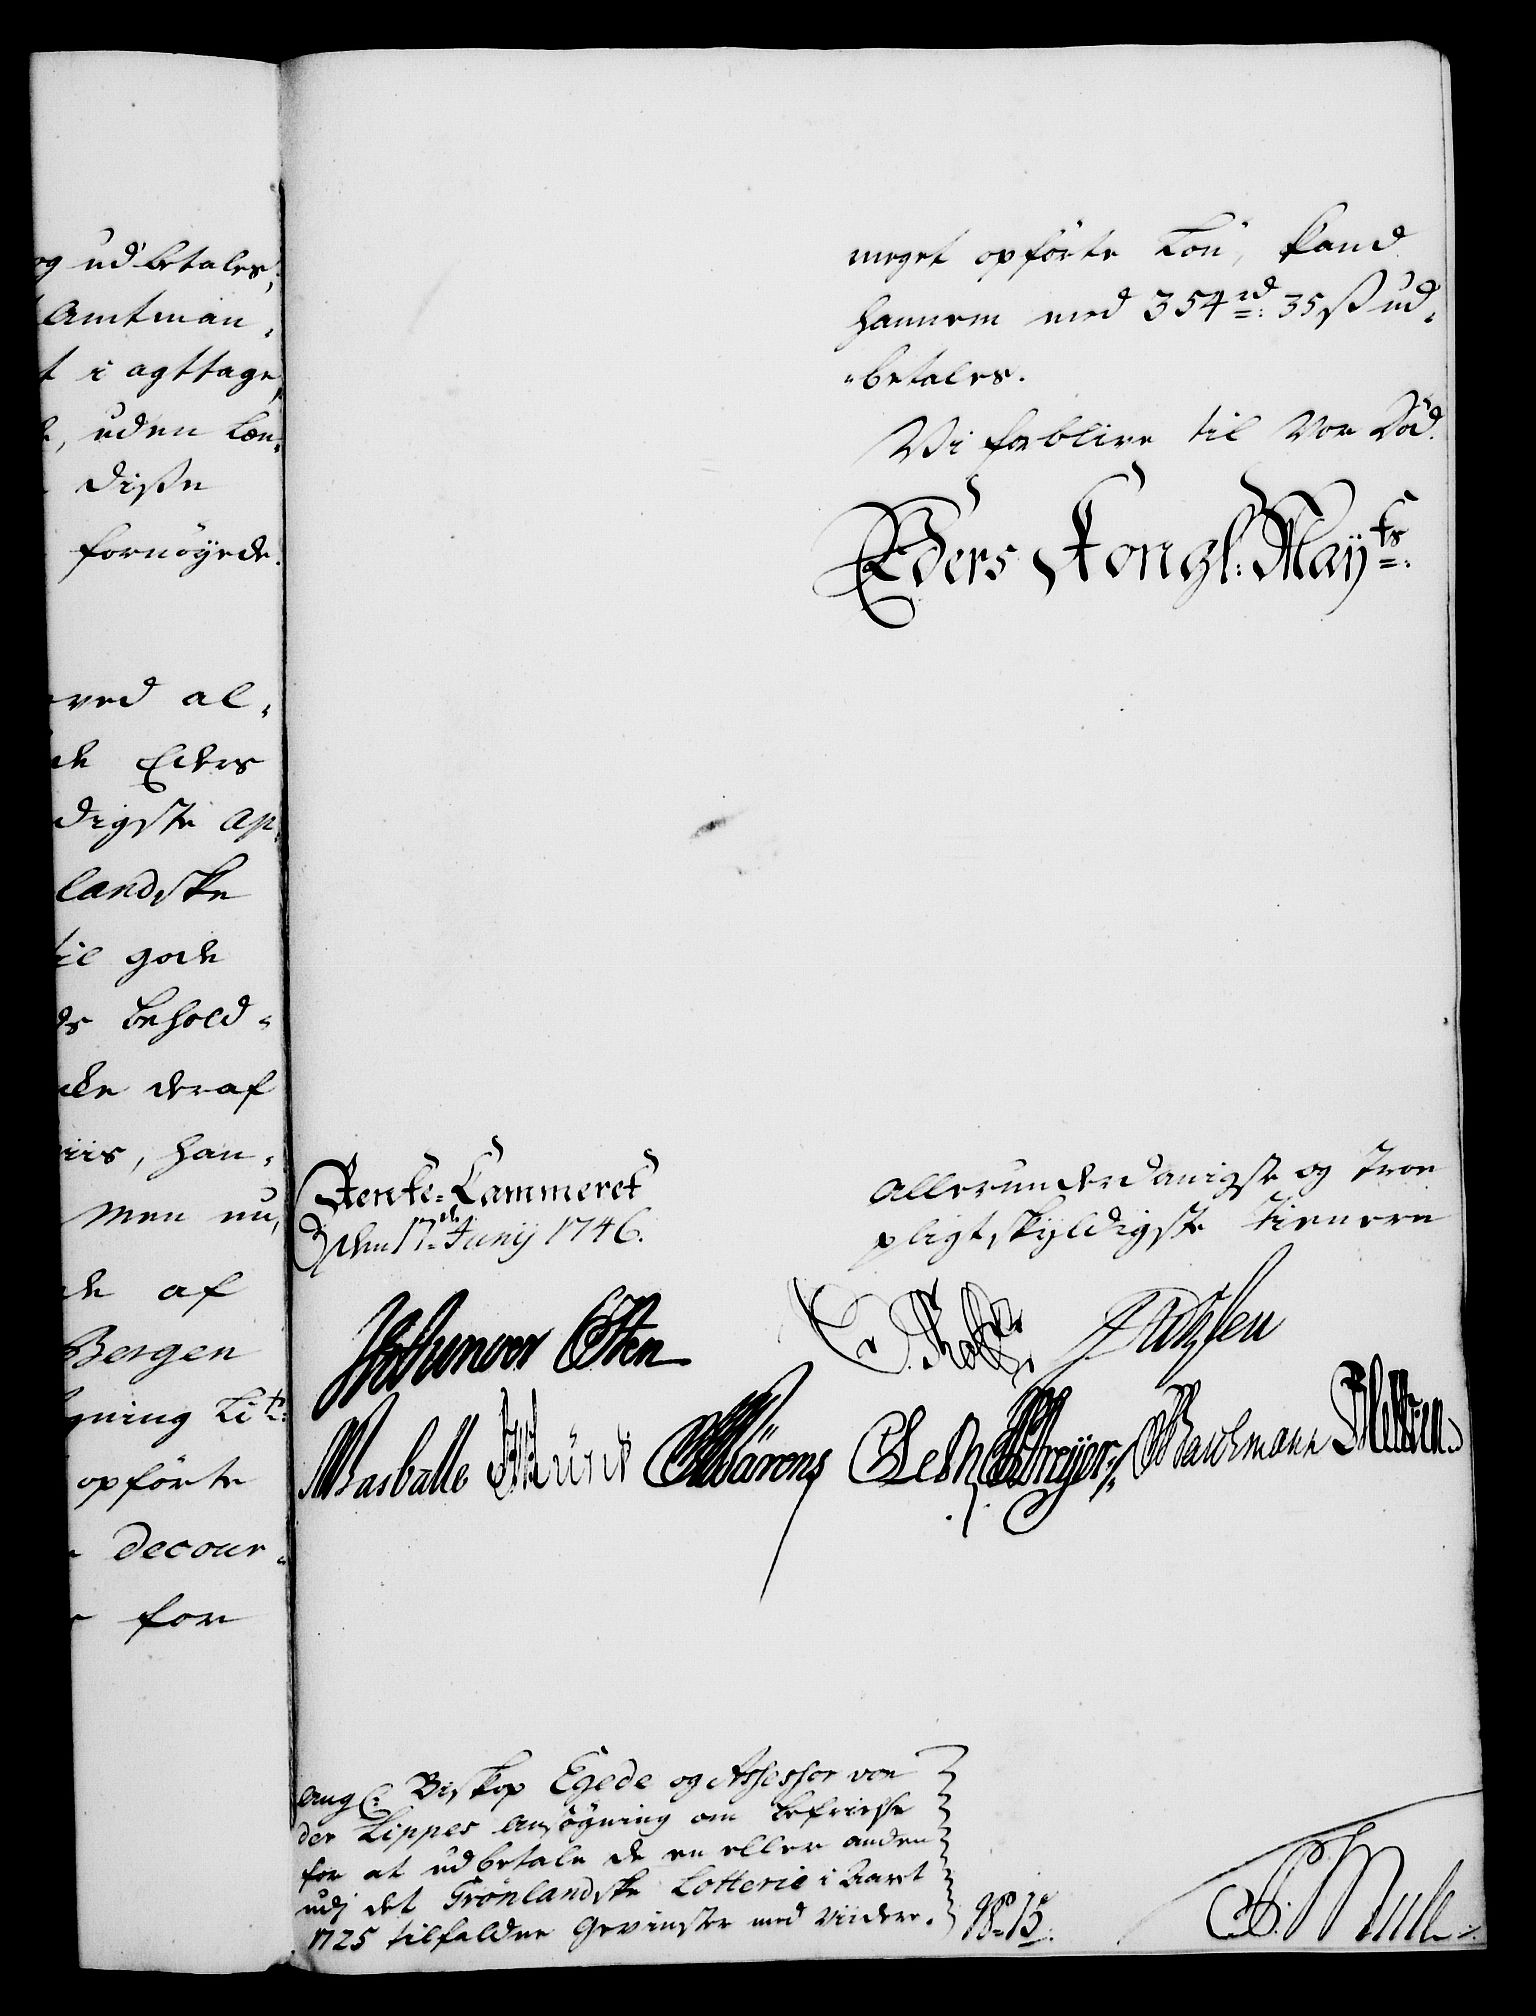 og udbetales,
Amtmān-
t i agttage,
, uden Læn-
Disse
fornöyede.
ved al-
de Eders
digste Ap-
landske
til gode
ds behold-
deraf
viis, han-
Men nu,
de af
Bergen
gning Lit:
opförte
decour-
for
meget opförte Lou, kand
hannem med 354 rd: 35 ß ud-
-betales.
Vi forblive til Vor Död.
Eders Kongl: Mayts:
Rente-Cammeret
den 17de Junij 1746.
allerunderdanigst og Troe
pligtskyldigste tienere
Wasballe
Bachmann
ang: Biskop Egede og Assessor von
der Lippes Ansögning om befrielse
for at udbetale de en eller anden
udj det Grönlandske Lotterie i Aaret
1725 tilfaldne Gevinster med Viidere.
No 15.